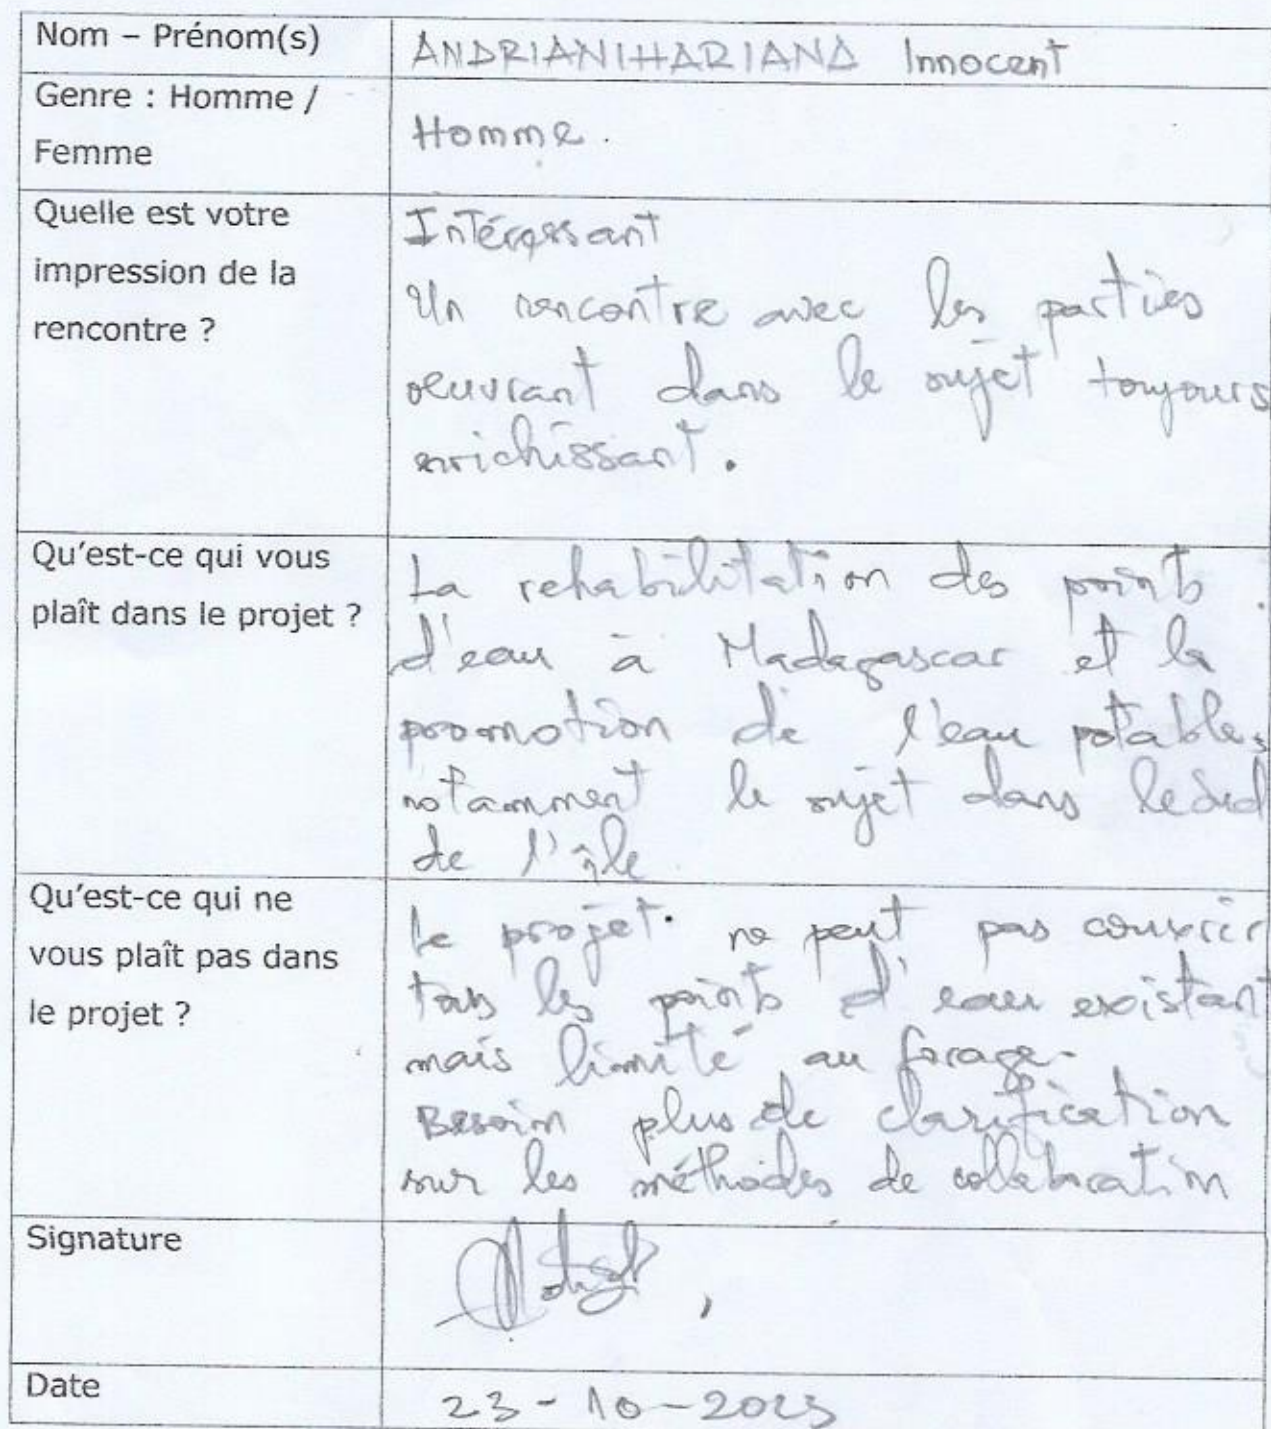 Nom – Prénom(s)
ANDRIANIHARIANA Innocent
Genre : Homme /
Femme
Homme.
Quelle est votre
impression de la
rencontre ?
Intéressant
Un rencontre avec les parties
oeuvrant dans le sujet toujours
enrichissant.
Qu'est-ce qui vous
plaît dans le projet ?
La rehabilitation des points
d'eau à Madagascar et la
promotion de l'eau potable,
notamment le sujet dans le Sud
de l'île
Qu'est-ce qui ne
vous plaît pas dans
le projet ?
Le projet ne peut pas couvrir
tous les points d'eau existant
mais limité au forage.
Besoin plus de clarification
sur les méthodes de collaboration
Signature
Date
23-10-2023